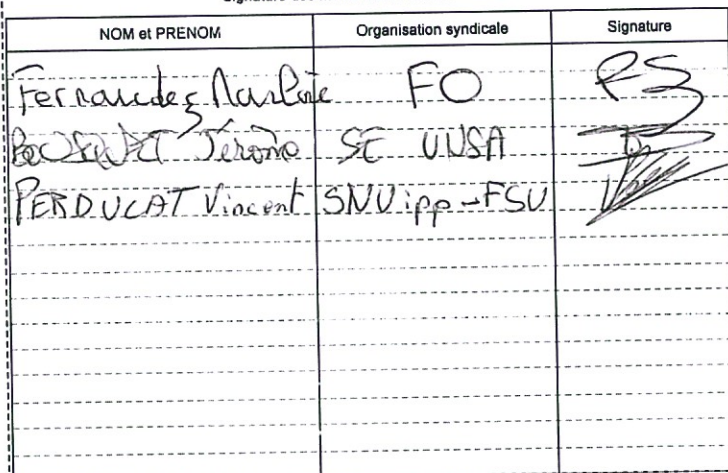 NOM et PRENOM Organisation syndicale Signature
Fernandez FO
Jérôme SE UNSA
PERDUCAT Vincent SNUipp-FSU